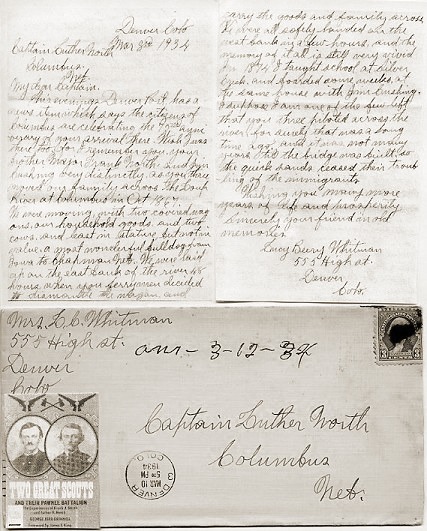 Denver Colo
Mar 3rd 1934
Captain Luther North
Columbus,
Neb.
My dear Captain:
This evenings Denver Post has a
news item which says the citizens of
Columbus are celebrating the
of your arrival there. Wish I was
there too, for I remember you, your
brother Major Frank North and Jim
Cushing very distinctly as you three
moved our family across the Loup
River at Columbus in Oct
We were moving with two covered wag
ons, our household goods, and two
cows, and least in stature but not in
value a most wonderful bulldog from
Iowa to Chapman Neb. We were laid
up on the east bank of the river 48
hours, when you ferrymen decided
to dismantle the wagon, and
carry the goods and family across
We were all safely landed on the
west bank in a few hours, and the
memory of it all is still very vivid
I taught school at
Creek, and boarded some weeks at
the same house with Jim Cushing.
I suppose I am one of the few left
that you three piloted across the
river, for surely that was a long
time ago, and it was not many
years till the bridge was built, so
the quick sands ceased their troub
ling of the immigrants.
Wishing you many more
years of life and prosperity
Sincerely your friend in old
memories
Lucy Whitman
555 High st.
Denver,
Colo.
Mrs. L. C. Whitman
555 High st.
Denver
Colo
ans - 3-12-34
3
DENVER
MAR 10
5 PM
1934
COLO.
Captain Luther North
Columbus
Neb.
TWO GREAT SCOUTS
AND THEIR PAWNEE BATTALION
The Experiences of Frank J. North
and Luther H. North
GEORGE BIRD GRINNELL
Foreword by James T. King